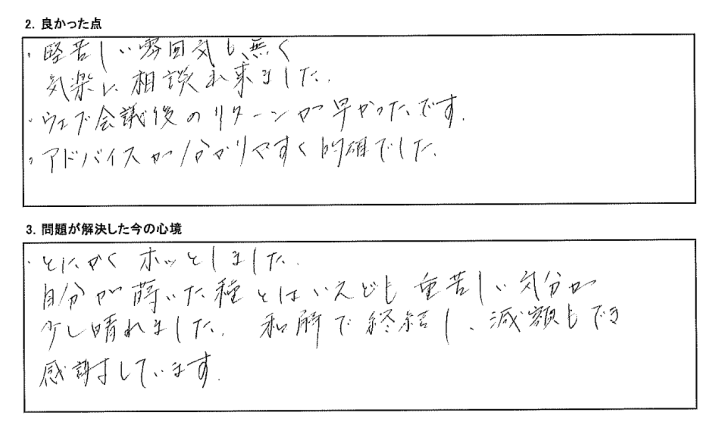 2. 良かった点
・堅苦しい雰囲気も無く
気楽に相談出来ました.
・ウェブ会議後のリターンが早かったです.
・アドバイスが分かりやすく的確でした.
3. 問題が解決した今の心境
・とにかくホッとしました.
自分が蒔いた種とはいえども重苦しい気分が
少し晴れました. 和解で終結し、減額もでき
感謝しています.